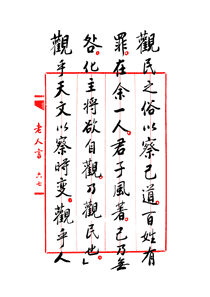 觀民之俗以察己道百姓有
罪在余一人君子風著己乃無
咎化主將欲自觀乃觀民也」
觀乎天文以察時變觀乎人
老人言 六七